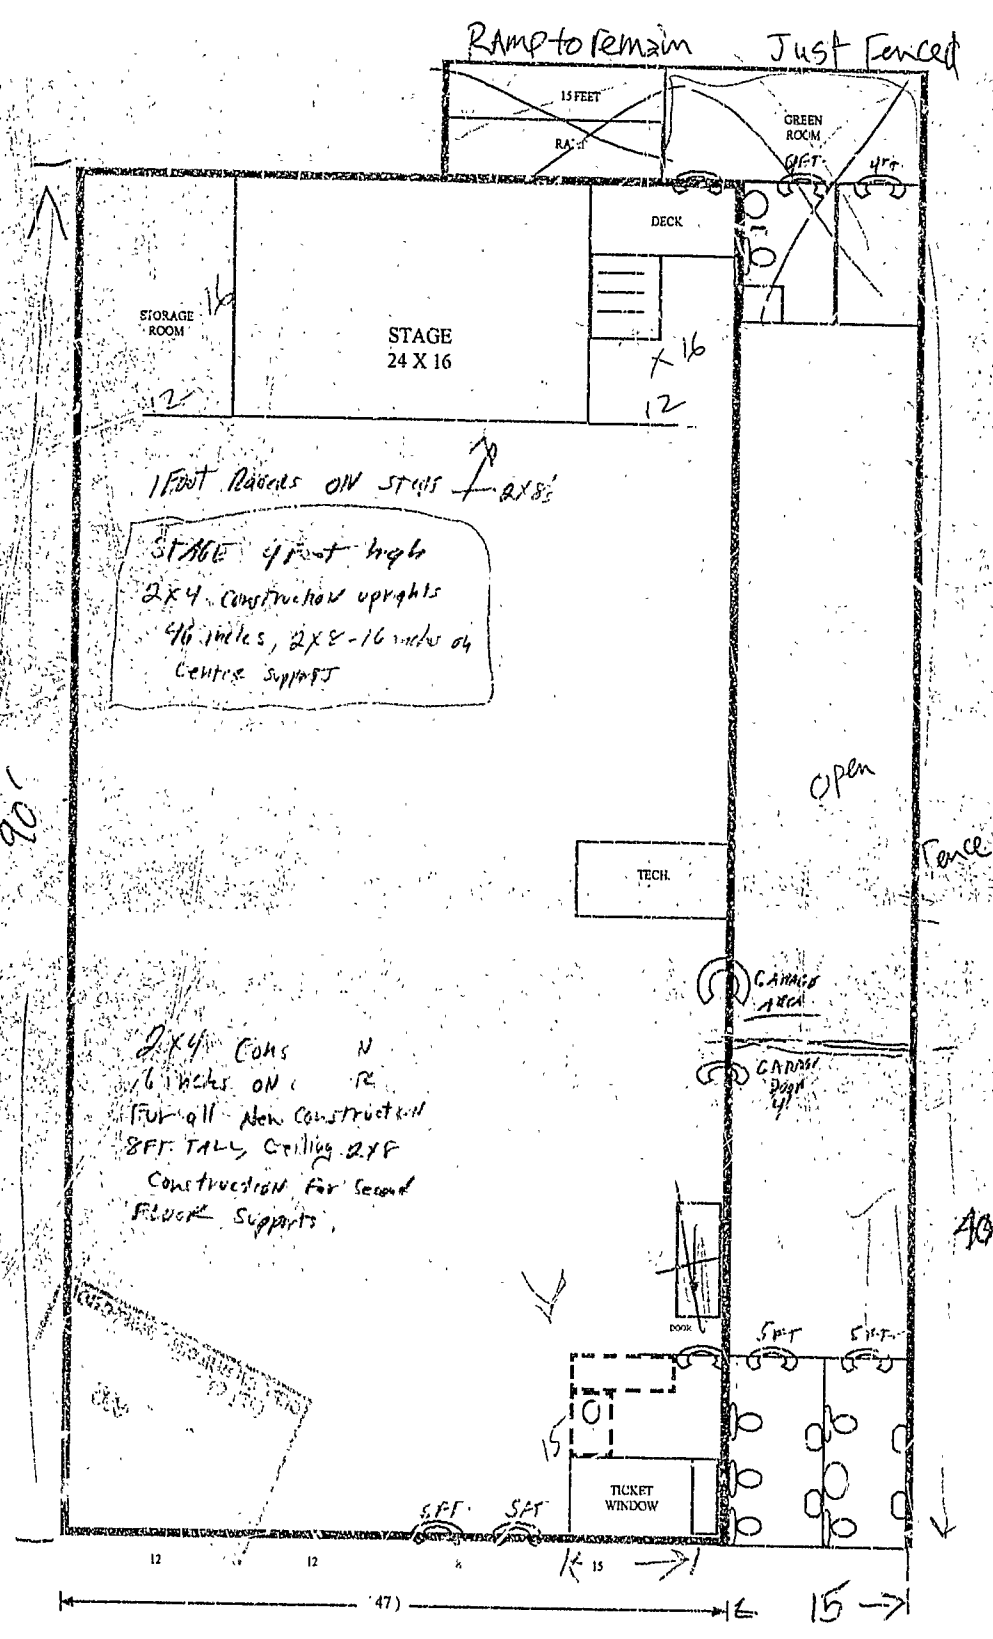 RAmp to remain
Just Fenced
15 FEET
GREEN
ROOM
4FT.
4FT
DECK
STORAGE
ROOM
16
STAGE
24 X 16
X 16
12
12
1 Foot
ON
2X8's
STAGE 4 Foot high
2X4 Construction uprights
inches, 2X8-16 inches on
Centre Supports
open
90'
Fence
TECH.
GARAGE
AREA
2X4 Cons
16 inches ON
For all New Construction
8FT. TALL, Ceiling 2X8
Construction For Second
FLOOR Supports.
GARAGE
DOOR
4'
40
DOOR
5FT
5FT.
15
TICKET
WINDOW
5FT.
5FT
12
12
8
15
47)
15